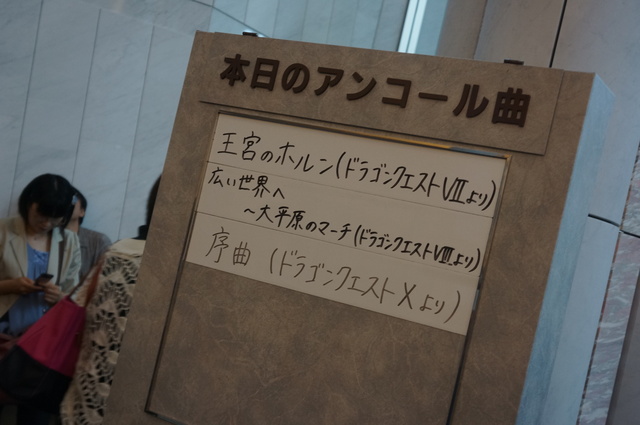 本日のアンコール曲
王宮のホルン(ドラゴンクエストⅦより)
広い世界へ
～大平原のマーチ(ドラゴンクエストⅧより)
序曲 (ドラゴンクエストXより)